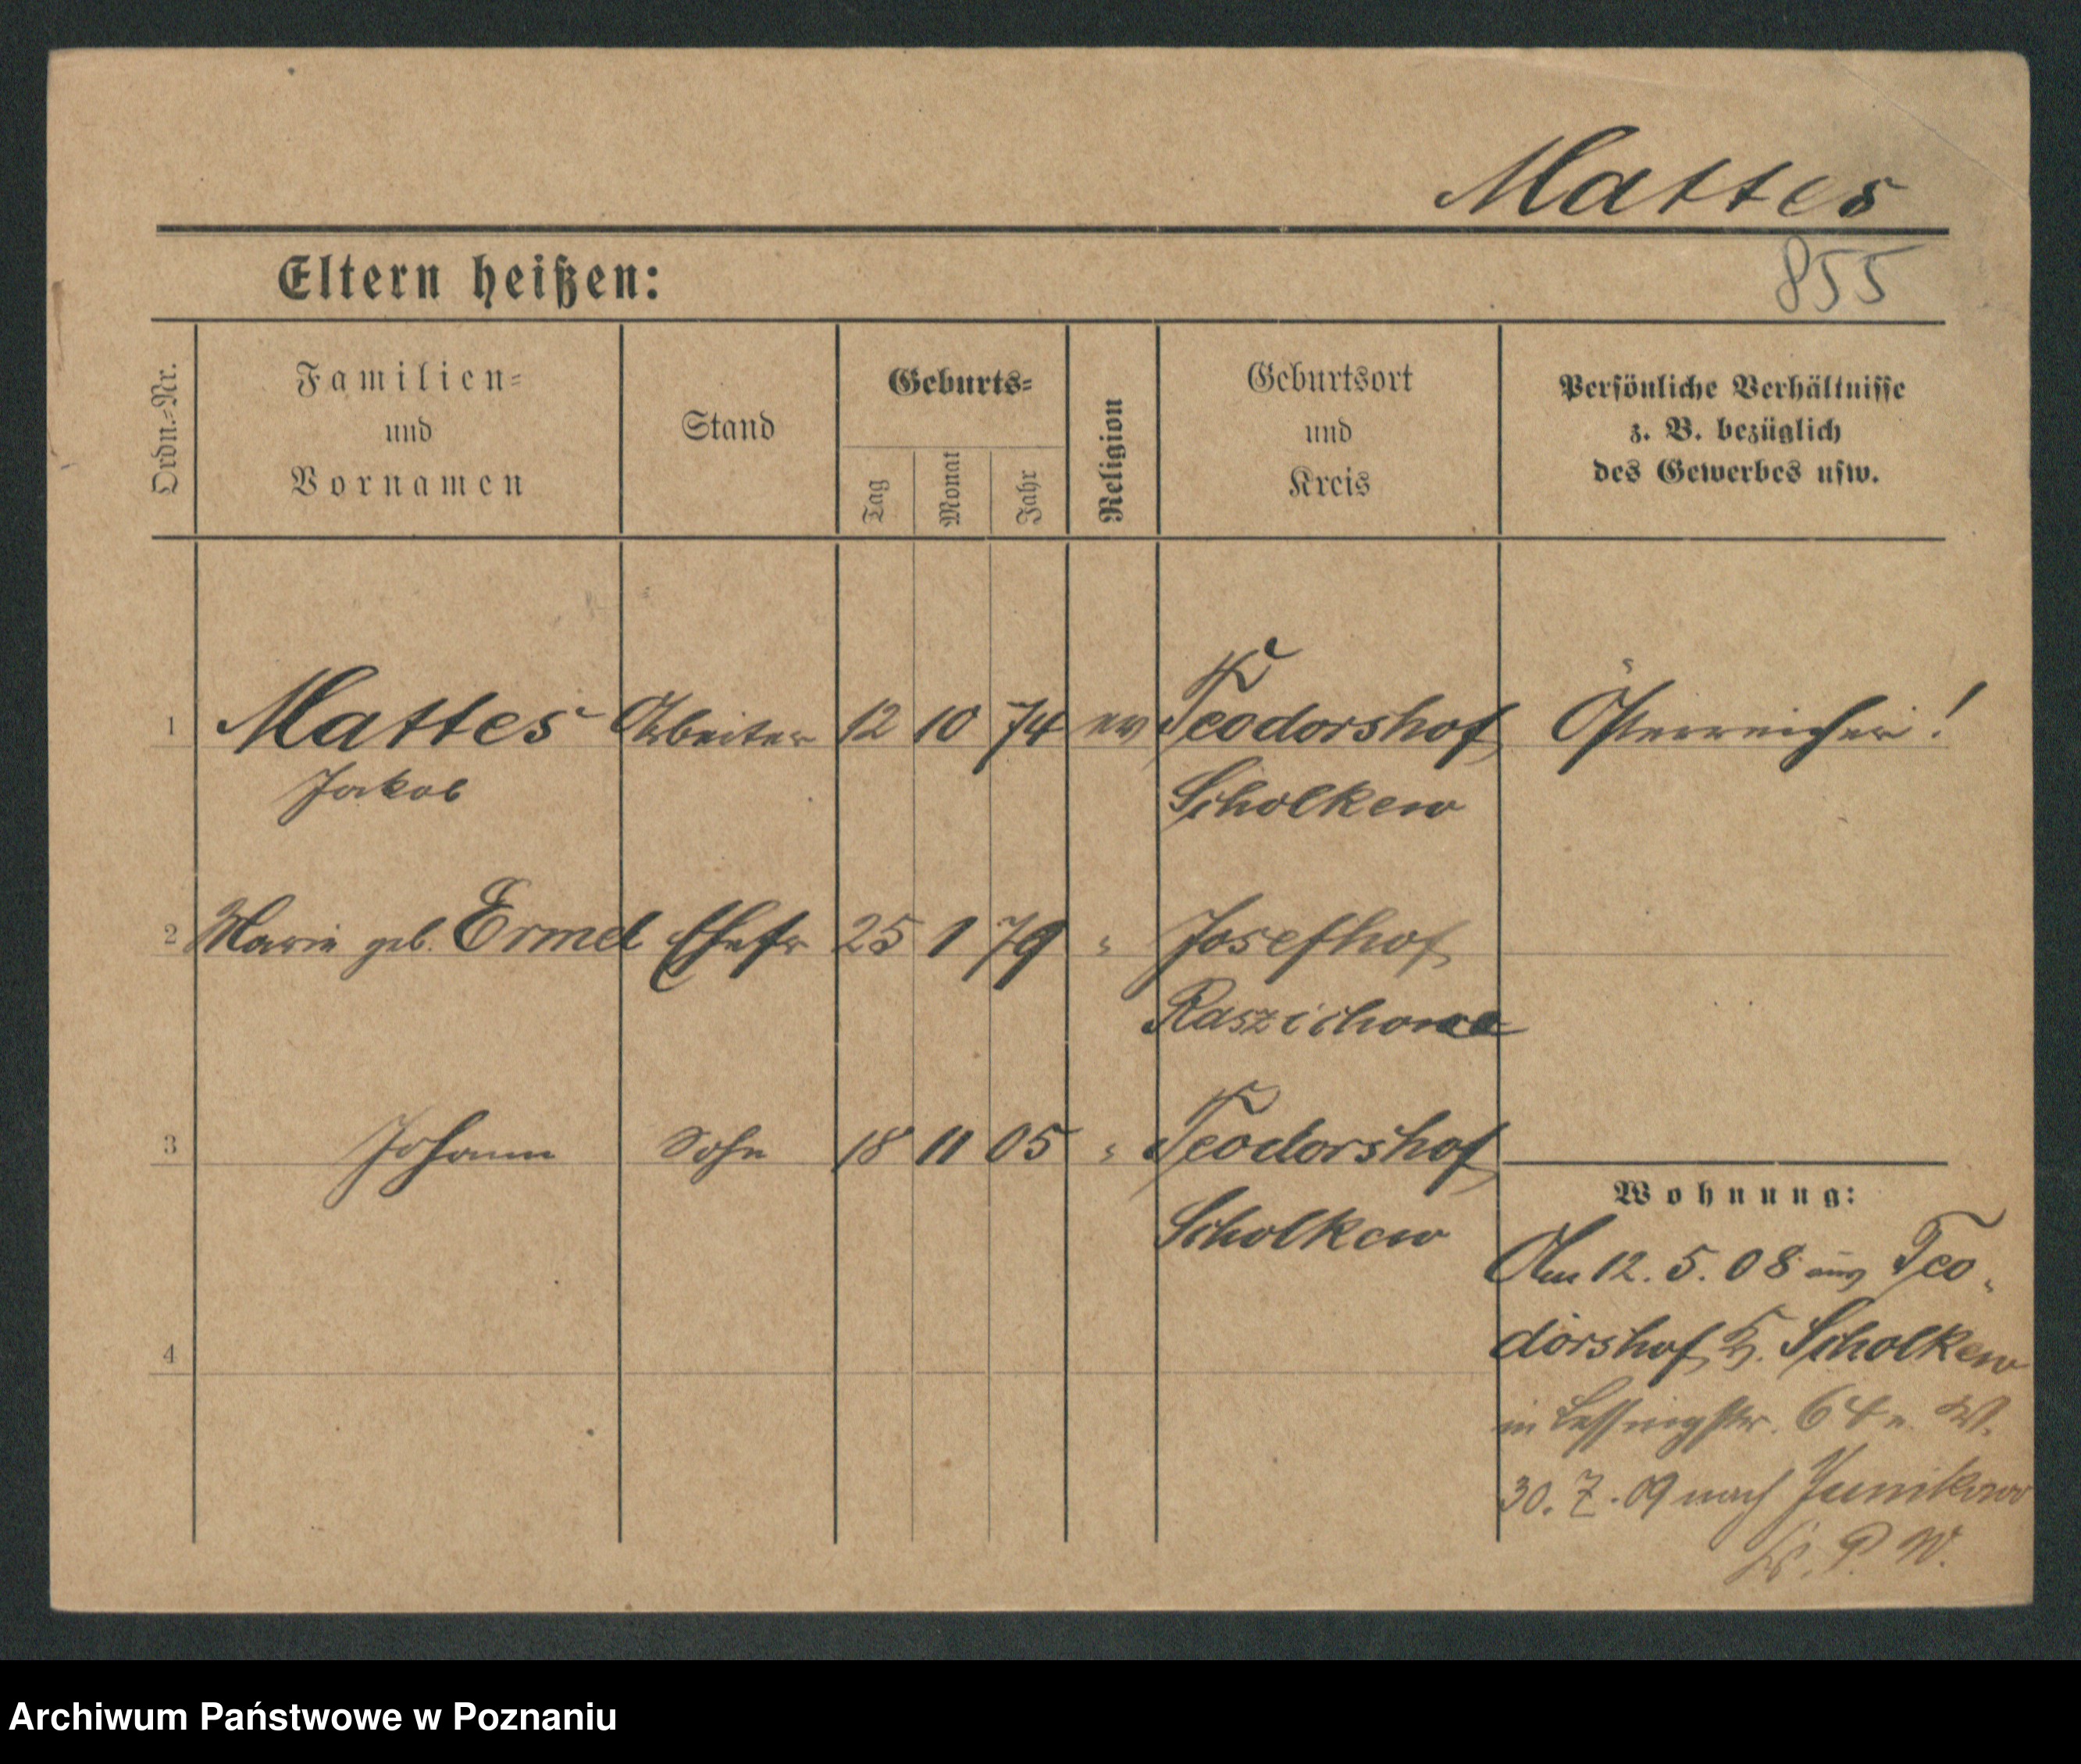 Mattes
855
Eltern heißen:
Ordn.-Nr.
Familien-
und
Vornamen
Stand
Geburts-
Tag
Monat
Jahr
Religion
Geburtsort
und
Kreis
Persönliche Verhältnisse
z. B. bezüglich
des Gewerbes usw.
1 Mattes Arbeiter 12 10 74 ev Teodorshof Österreicher!
Jakob Scholkew
2 Marie geb. Ermel Ehefr 25 1 79 " Josefhof
3 Johann Sohn 18 11 05 " Teodorshof
Scholkew
Wohnung:
Am 12. 5. 08 aus Teo-
dorshof K. Scholkew
in Lessingstr. 64 W.
30. 7. 09 nach Junikowo
Kr. P. W.
4
Archiwum Państwowe w Poznaniu